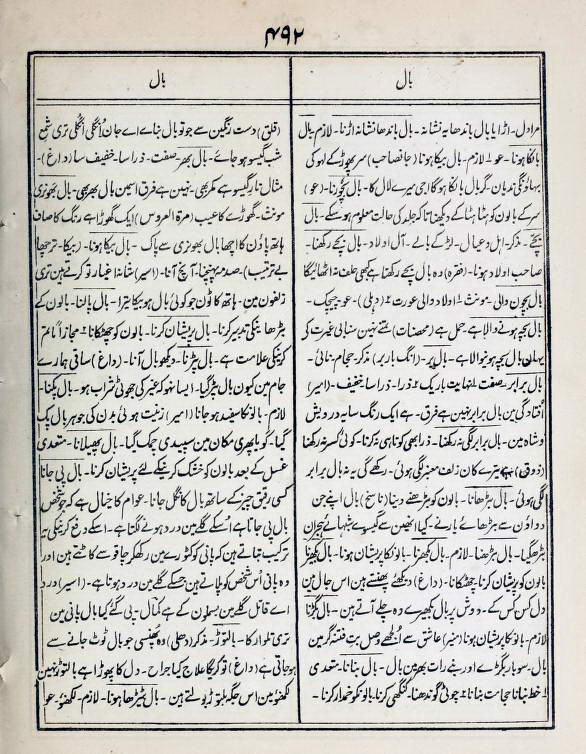 ۴۹۲
بال
مرادل۔ اڑا یا بال باندھا ہے نشانہ۔ بال باندھا نشانہ اڑنا۔ لازم۔ بال
بانکا ہونا۔ عو ۱ لازم۔ بال بیکا ہونا (جانصاحب) سر پھوڑ کے لہو کی
بہاؤنگی ندیاں۔ گر بال بانکا ہوگا اجی میرے لال کا۔ بال بکھرنا۔ (عو)
سر کے بالون کو ہٹا ہٹا کے دیکھنا تا کہ جلد کی حالت معلوم ہو سکے۔ بال
بچے۔ مذکر۔ اہل و عیال۔ لڑکے بالے۔ آل اولاد۔ بال بچے رکھنا۔
صاحب اولاد ہونا۔ (فقرہ) وہ بال بچے رکھتا ہے کبھی حلف نہ اٹھائیگا
بال بچون والی۔ مونث ۱ اولاد والی عورت ۲ (دہلی)۔ عو۔ چیچک۔
بال بچہ ہونے والا ہے۔ حمل ہے (محصنات) سُنتے ہین سنابی غیرت کی
یہان بال بچہ ہونیوالا ہے۔ بال بر۔ (انگ باربر) مذکر۔ حجام۔ نائی۔
بال برابر۔ صفت ۱ نہایت باریک ۲ ذرا۔ ذرا سا۔ خفیف۔ (امیر)
اُفتادگی مین بال برابر نہین ہے فرق۔ ہے ایک رنگ سایہ درویش
و شاہ مین۔ بال برابر لگی نہ رکھنا۔ ذرا بھی کوتاہی نہ کرنا۔ کوئی کسر نہ رکھنا
(ذوق) ہے تیرے کان زلف معنبر لگی ہوئی۔ رکھے گی یہ نہ بال برابر
لگی ہوئی۔ بال بڑھانا۔ بالون کو بڑھنے دینا (ناسخ) بال اپنے جن
دواؤن سے بڑھائے یار نے۔ کیا انھین سے گیسوے شبہائے ہجران
بڑھ گیا۔ بال بڑھنا۔ لازم۔ بال بکھرنا۔ بالونکا پریشان ہونا۔ بال بکھیرنا
بالون کو پریشان کرنا۔ چھٹکانا۔ (داغ) دیکھئے پھنستے ہین اس جال مین
دل کس کس کے۔ دوش پر بال بکھیرے وہ چلے آتے ہین۔ بال بگڑنا
لازم۔ بالونکا پریشان ہونا (منیر) عاشق سے اُلجھے وصل بت فتنہ گر مین
بال۔ سو بار بگڑے اور بنے رات بھر مین بال۔ بال بنانا۔ متعدی
۱ خط بنانا۔ حجامت بنانا ۲ چوٹی گوندھنا۔ کنگھی کرنا۔ بالونکو خمدار کرنا۔
بال
(قلق) دست رنگین سے جو تو بال بنائے اے جان۔ اُنگلی اُنگلی تری شمع
شب گیسو ہو جائے۔ بال بھر۔ صفت۔ ذرا سا۔ خفیف سا (داغ)۔
مثال تار گیسو ہے کمر بھی۔ نہین ہے فرق اسمین بال بھر بھی۔ بال بھونری
مونث۔ گھوڑے کا عیب (مرۃ العروس) ایک گھوڑا ہے رنگ کا صاف
ہاتھ پاؤن کا اچھا بال بھونری سے پاک۔ بال بیکا ہونا۔ (بیکا۔ ترچھا
بے ترتیب)۔ صدمہ پہنچنا۔ آنچ آنا۔ (اسیر) شانہ اغیار تو کرتے ہین تری
زلفون مین۔ ہاتھ کاٹون جو کوئی بال ہو بیکا تیرا۔ بال پالنا۔ بالون کے
بڑھانیکی تدبیر کرنا۔ بال پریشان کرنا۔ بالون کو چھٹکانا ۲ مجازاً ماتم
کرنیکی علامت ہے۔ بال پڑنا۔ دیکھو بال آنا۔ (داغ) ساقی ہمارے
جام مین کیون بال پڑ گیا۔ ایسا نہو کہ غیر کی جھوٹی شراب ہو۔ بال پکنا۔
لازم۔ بالونکا سفید ہو جانا (امیر) زینت ہوئی بدن کی جو ہر بال پک
گیا۔ گویا پھری مکان مین سپیدی چمک گیا۔ بال پھیلانا۔ متعدی
غسل کے بعد بالون کو خشک کرنیکے لئے پریشان کرنا۔ بال پی جانا
کسی رقیق چیز کے ساتھ بال کا نگل جانا۔ عوام کا خیال ہے کہ جو شخص
بال پی جاتا ہے اُسکے گلے مین درد ہونے لگتا ہے۔ اسکے دفع کرنیکی یہ
ترکیب بتاتے ہین کہ پانی کو کٹورے مین رکھکر چاقو سے کاٹتے ہین اور
وہ پانی اُس شخص کو پلاتے ہین جسکے گلے مین درد ہوتا ہے۔ (اسیر) درد
اے قاتل گلے مین بسملون کے ہے کمال۔ پی گئے کیا بال پانی مین
تری تلوار کا۔ بالتوڑ۔ مذکر (دہلی) وہ پھنسی جو بال ٹوٹ جانے سے
ہو جاتی ہے (داغ) تو کریگا علاج کیا جراح۔ دل کا پھوڑا ہے بالتوڑ نہین
لکھنؤ مین اس جگہ بلتوڑ بولتے ہین۔ بال ٹیڑھا ہونا۔ لازم۔ لکھنؤ۔ عو